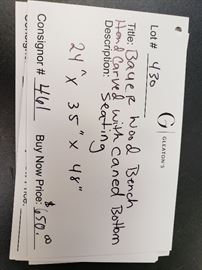 G | GLEATON'S
Lot # 430
Title: Bayer Wood Bench
Description: Hand Carved with Caned Bottom
Seating
24" x 35" x 48"
Consignor # 461 Buy Now Price: $650.00